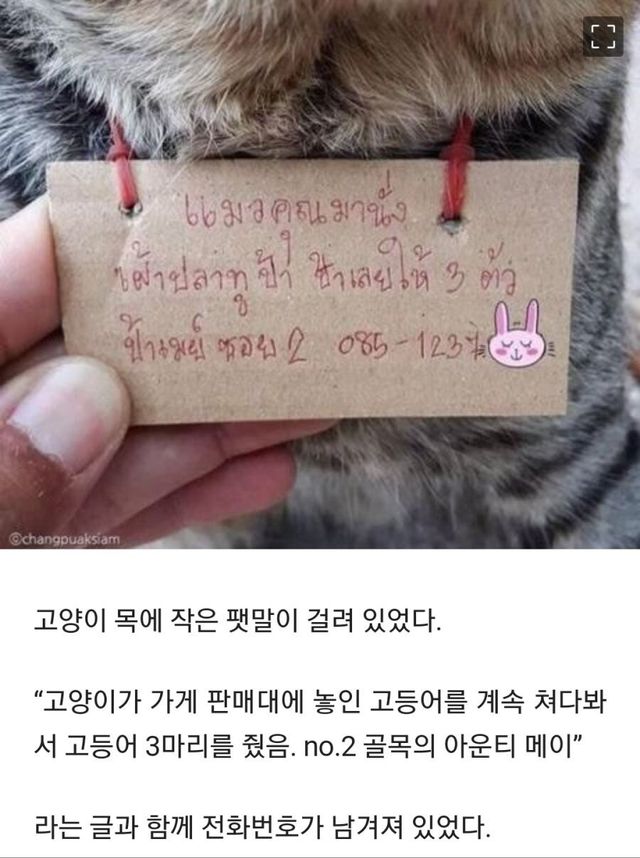 แมวคุณมานั่ง
เฝ้าปลาทูป้า ป้าเลยให้ 3 ตัว
ป้าเมย์ ซอย 2 085-1237
©changpuaksiam
고양이 목에 작은 팻말이 걸려 있었다.
“고양이가 가게 판매대에 놓인 고등어를 계속 쳐다봐
서 고등어 3마리를 줬음. no.2 골목의 아운티 메이”
라는 글과 함께 전화번호가 남겨져 있었다.